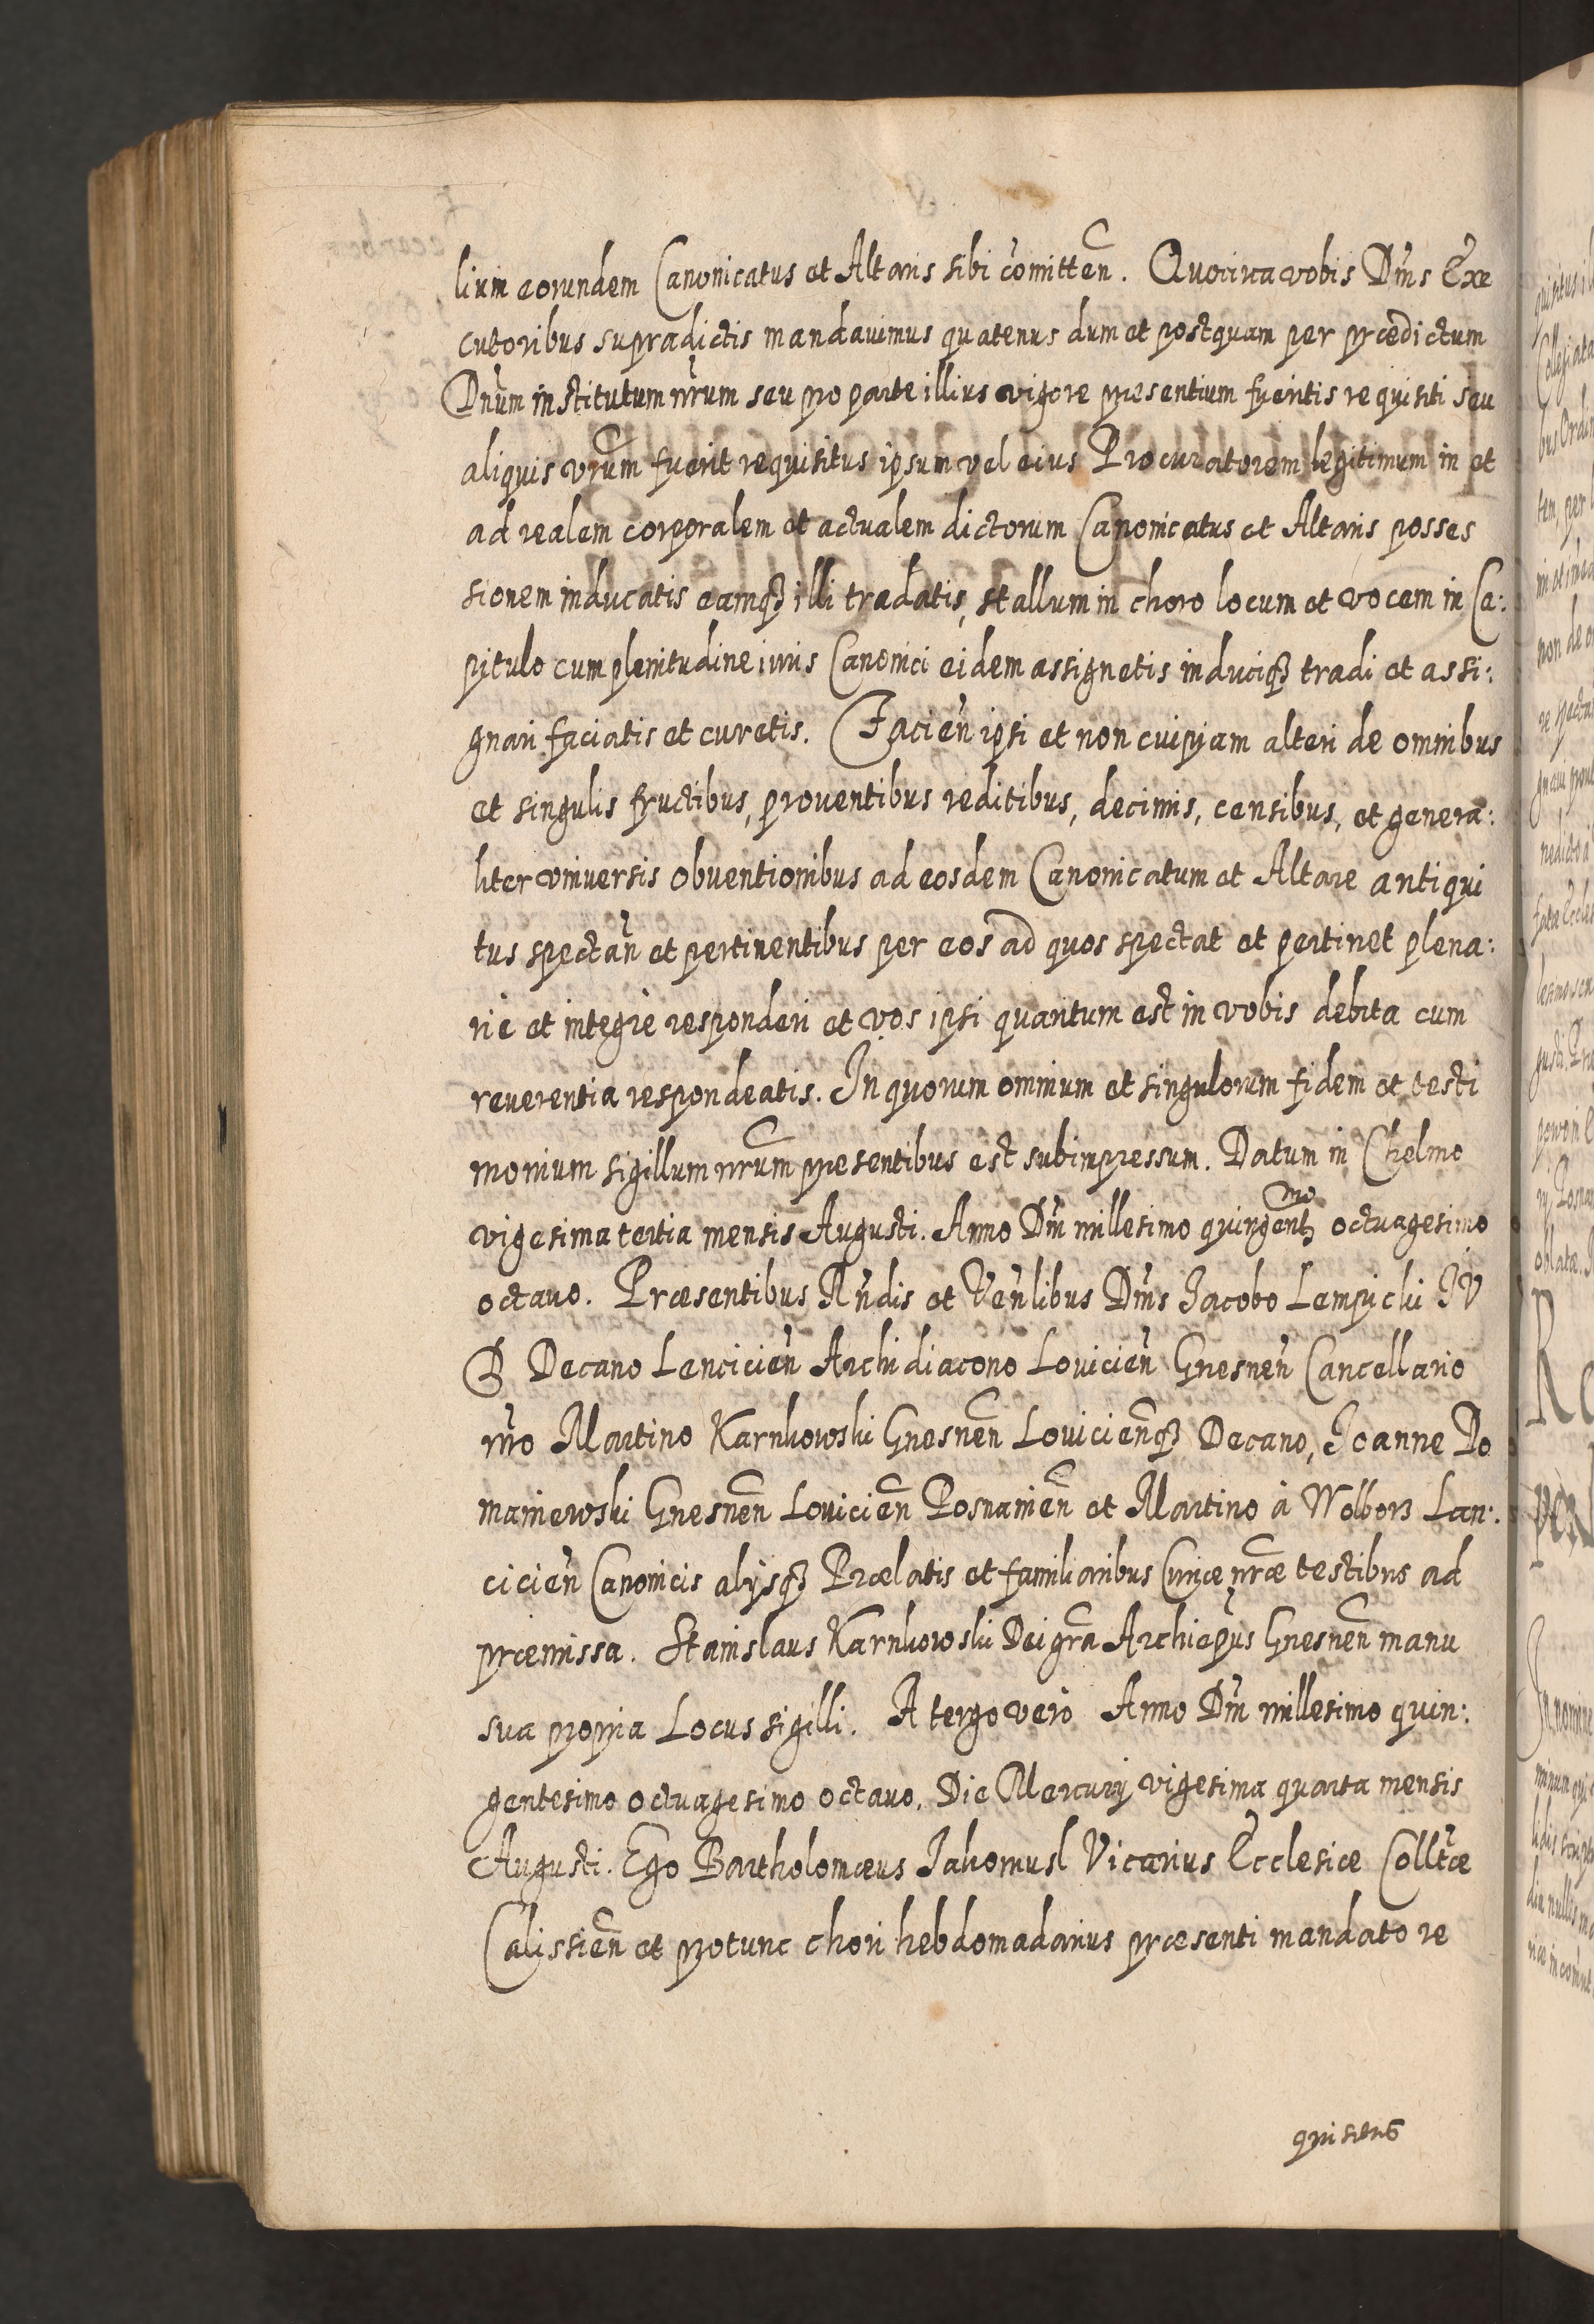 lium eorundem Canonicatus et Altaris sibi comitten̄. Quocirca vobis Dm̄s Exe
cutoribus supradictis mandauimus quatenus dum et postquam per prædictum
Dnūm institutum nr̄um seu pro parte illius vigore presentium fueritis requisiti seu
aliquis vr̄um fuerit requisitus ipsum vel eius Procuratorem legitimum in et
ad realem corporalem et actualem dictorum Canonicatus et Altaris posses
sionem inducatis eamqꝫ illi tradatis, stallum in choro locum et vocem in Ca:
pitulo cum plenitudine iuris Canonici eidem assignetis induciqꝫ tradi et assi:
gnari faciatis et curetis. Facien̄ ipsi et non cuipiam alteri de omnibus
et singulis fructibus, prouentibus reditibus, decimis, censibus, et genera:
liter vniuersis obuentionibus ad eosdem Canonicatum et Altare antiqui
tus spectan̄ et pertinentibus per eos ad quos spectat et pertinet plena:
rie et integre responderi et vos ipsi quantum est in vobis debita cum
reuerentia respondeatis. In quorum omnium et singulorum fidem et testi
monium sigillum nr̄um presentibus est subimpressum. Datum in Chelmo
vigesima tertia mensis Augusti. Anno Dm̄ millesimo quingentꝫmo octuagesimo
octauo. Præsentibus Rn̄dis et Ven̄libus Dm̄s Jacobo Lempicki IV
D Decano Lencicien̄ Archidiacono Louicien̄ Gnesnen̄ Cancellario
nr̄o Martino Karnkowski Gnesnen̄ Louicien̄qꝫ Decano, Joanne Do
maniewski Gnesnen̄ Louicien̄ Posnanien̄ et Martino à Wolborz Lan:
cicien̄ Canonicis alijsqꝫ Prælatis et familiaribus Curiæ nr̄æ testibus ad
præmissa. Stanislaus Karnkowski Dei gr̄a Archiep̄us Gnesnen̄ manu
sua propria Locus sigilli. A tergo vero Anno Dm̄ millesimo quin:
gentesimo octuagesimo octauo. Die Mercurij vigesima quarta mensis
Augusti. Ego Bartholomæus Jakomusl Vicarius Ecclesiæ Collt̄æ
Calissien̄ et protunc chori hebdomadarius præsenti mandato re
quisitus